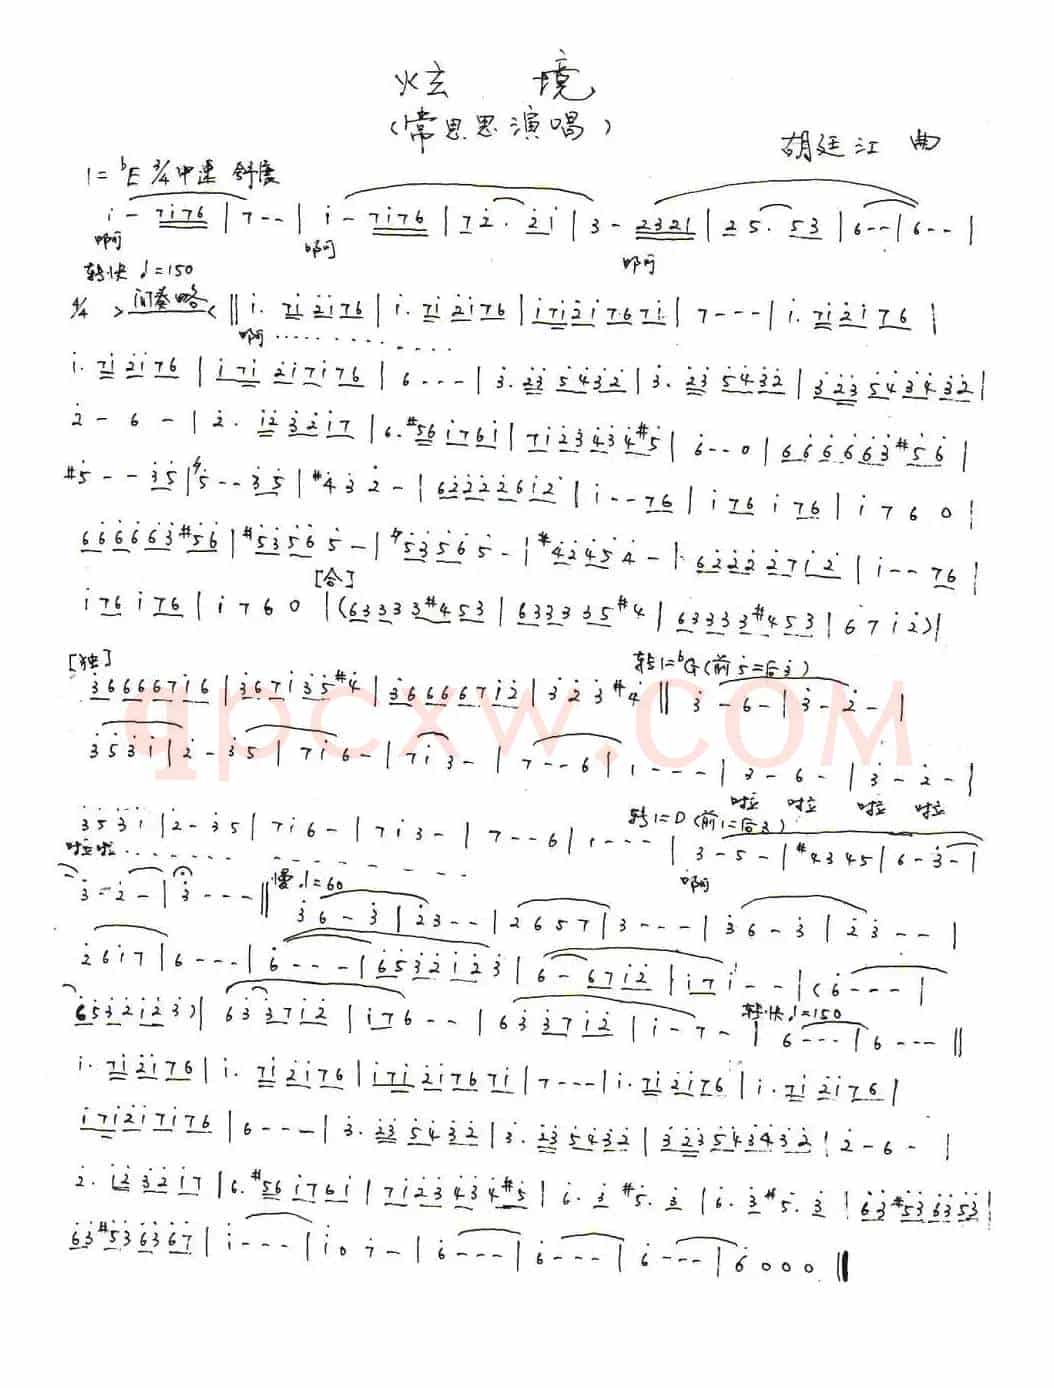 炫 境
(常思思演唱)
胡廷江 曲
1=ᵇE 3/4 中速 舒展
i - 7i76 | 7 - - | i - 7i76 | 7 2̇. 2̇i | 3 - 2321 | 2 5. 53 | 6 - - | 6 - - |
啊 啊 啊
转快 ♩=150
4/4 > 间奏略 < ‖ i. 7i 2̇i76 | i. 7i 2̇i76 | i7i2̇i767i | 7 - - - | i. 7i2̇i76 |
啊 . . . . . .
i. 7i 2̇i76 | i7i 2̇i7i76 | 6 - - - | 3̇. 2̇3̇ 5̇4̇3̇2̇ | 3̇. 2̇3̇ 5̇4̇3̇2̇ | 3̇2̇3̇ 5̇4̇3̇4̇3̇2̇ |
2̇ - 6 - | 2̇. i2̇ 3̇2̇i7 | 6. #56 i76i | 7i2̇3̇4̇3̇4̇#5̇ | 6̇ - - 0 | 6̇6̇6̇6̇6̇3̇#5̇6̇ |
#5̇ - - 3̇5̇ | 5̇ - - 3̇5̇ | #4̇ 3̇ 2̇ - | 62̇2̇2̇2̇6i2̇ | i - - 76 | i76 i76 | i 7 6 0 |
6̇6̇6̇6̇6̇3̇#5̇6̇ | #5̇3̇5̇6̇ 5̇ - | 5̇3̇5̇6̇ 5̇ - | #4̇2̇4̇5̇ 4̇ - | 62̇2̇2̇2̇7i2̇ | i - - 76 |
[合]
i76 i76 | i 7 6 0 | (63333#453 | 633335#4 | 63333#453 | 6 7 i 2̇) |
[独] 转1=ᵇG(前5̇=后3̇)
3̇66667i6 | 367i3̇5̇#4̇ | 3̇66667i2̇ | 3̇ 2̇ 3̇ #4̇ ‖ 3̇ - 6 - | 3̇ - 2̇ - |
3̇ 5̇ 3̇ i | 2̇ - 3̇ 5̇ | 7 i 6 - | 7 i 3 - | 7 - - 6 | 1 - - - | 3 - 6 - | 3̇ - 2̇ - |
啦 啦 啦 啦
转1=D(前1=后3)
3̇ 5̇ 3̇ i | 2̇ - 3̇ 5̇ | 7 i 6 - | 7 i 3 - | 7 - - 6 | 1 - - - | 3 - 5 - | #4 3 4 5 | 6 - 3̇ - |
啦啦 . . . . . . 啊
3̇ - 2̇ - | 3̇ - - - ‖ 慢♩=60 3̇ 6 - 3̇ | 2̇ 3̇ - - | 2 6 5 7 | 3 - - - | 3̇ 6 - 3̇ | 2̇ 3̇ - - |
2̇ 6 i 7 | 6 - - - | 6̇ - - - | 6̇5̇3̇2̇i2̇3̇ | 6 - 67i2̇ | i7i - - | (6̇ - - - |
转快♩=150
6̇5̇3̇2̇i2̇3̇) | 63̇3̇7i2̇ | i76 - - | 63̇3̇7i2̇ | i - 7 - | 6 - - - | 6 - - - ‖
i. 7i2̇i76 | i. 7i2̇i76 | i7i2̇i767i | 7 - - - | i. 7i2̇i76 | i. 7i2̇i76 |
i7i2̇i7i76 | 6 - - - | 3̇. 2̇3̇5̇4̇3̇2̇ | 3̇. 2̇3̇5̇4̇3̇2̇ | 3̇2̇3̇5̇4̇3̇4̇3̇2̇ | 2̇ - 6 - |
2̇. i2̇ 3̇2̇i7 | 6. #56 i76i | 7i2̇3̇4̇3̇4̇#5̇ | 6̇. 3̇ #5̇. 3̇ | 6̇. 3̇ #5̇. 3̇ | 6̇3̇#5̇3̇6̇3̇5̇3̇ |
6̇3̇#5̇3̇6̇3̇6̇7̇ | i - - - | i 0 7 - | 6̇ - - - | 6̇ - - - | 6̇ - - - | 6̇ 0 0 0 ‖
qpcxw.com